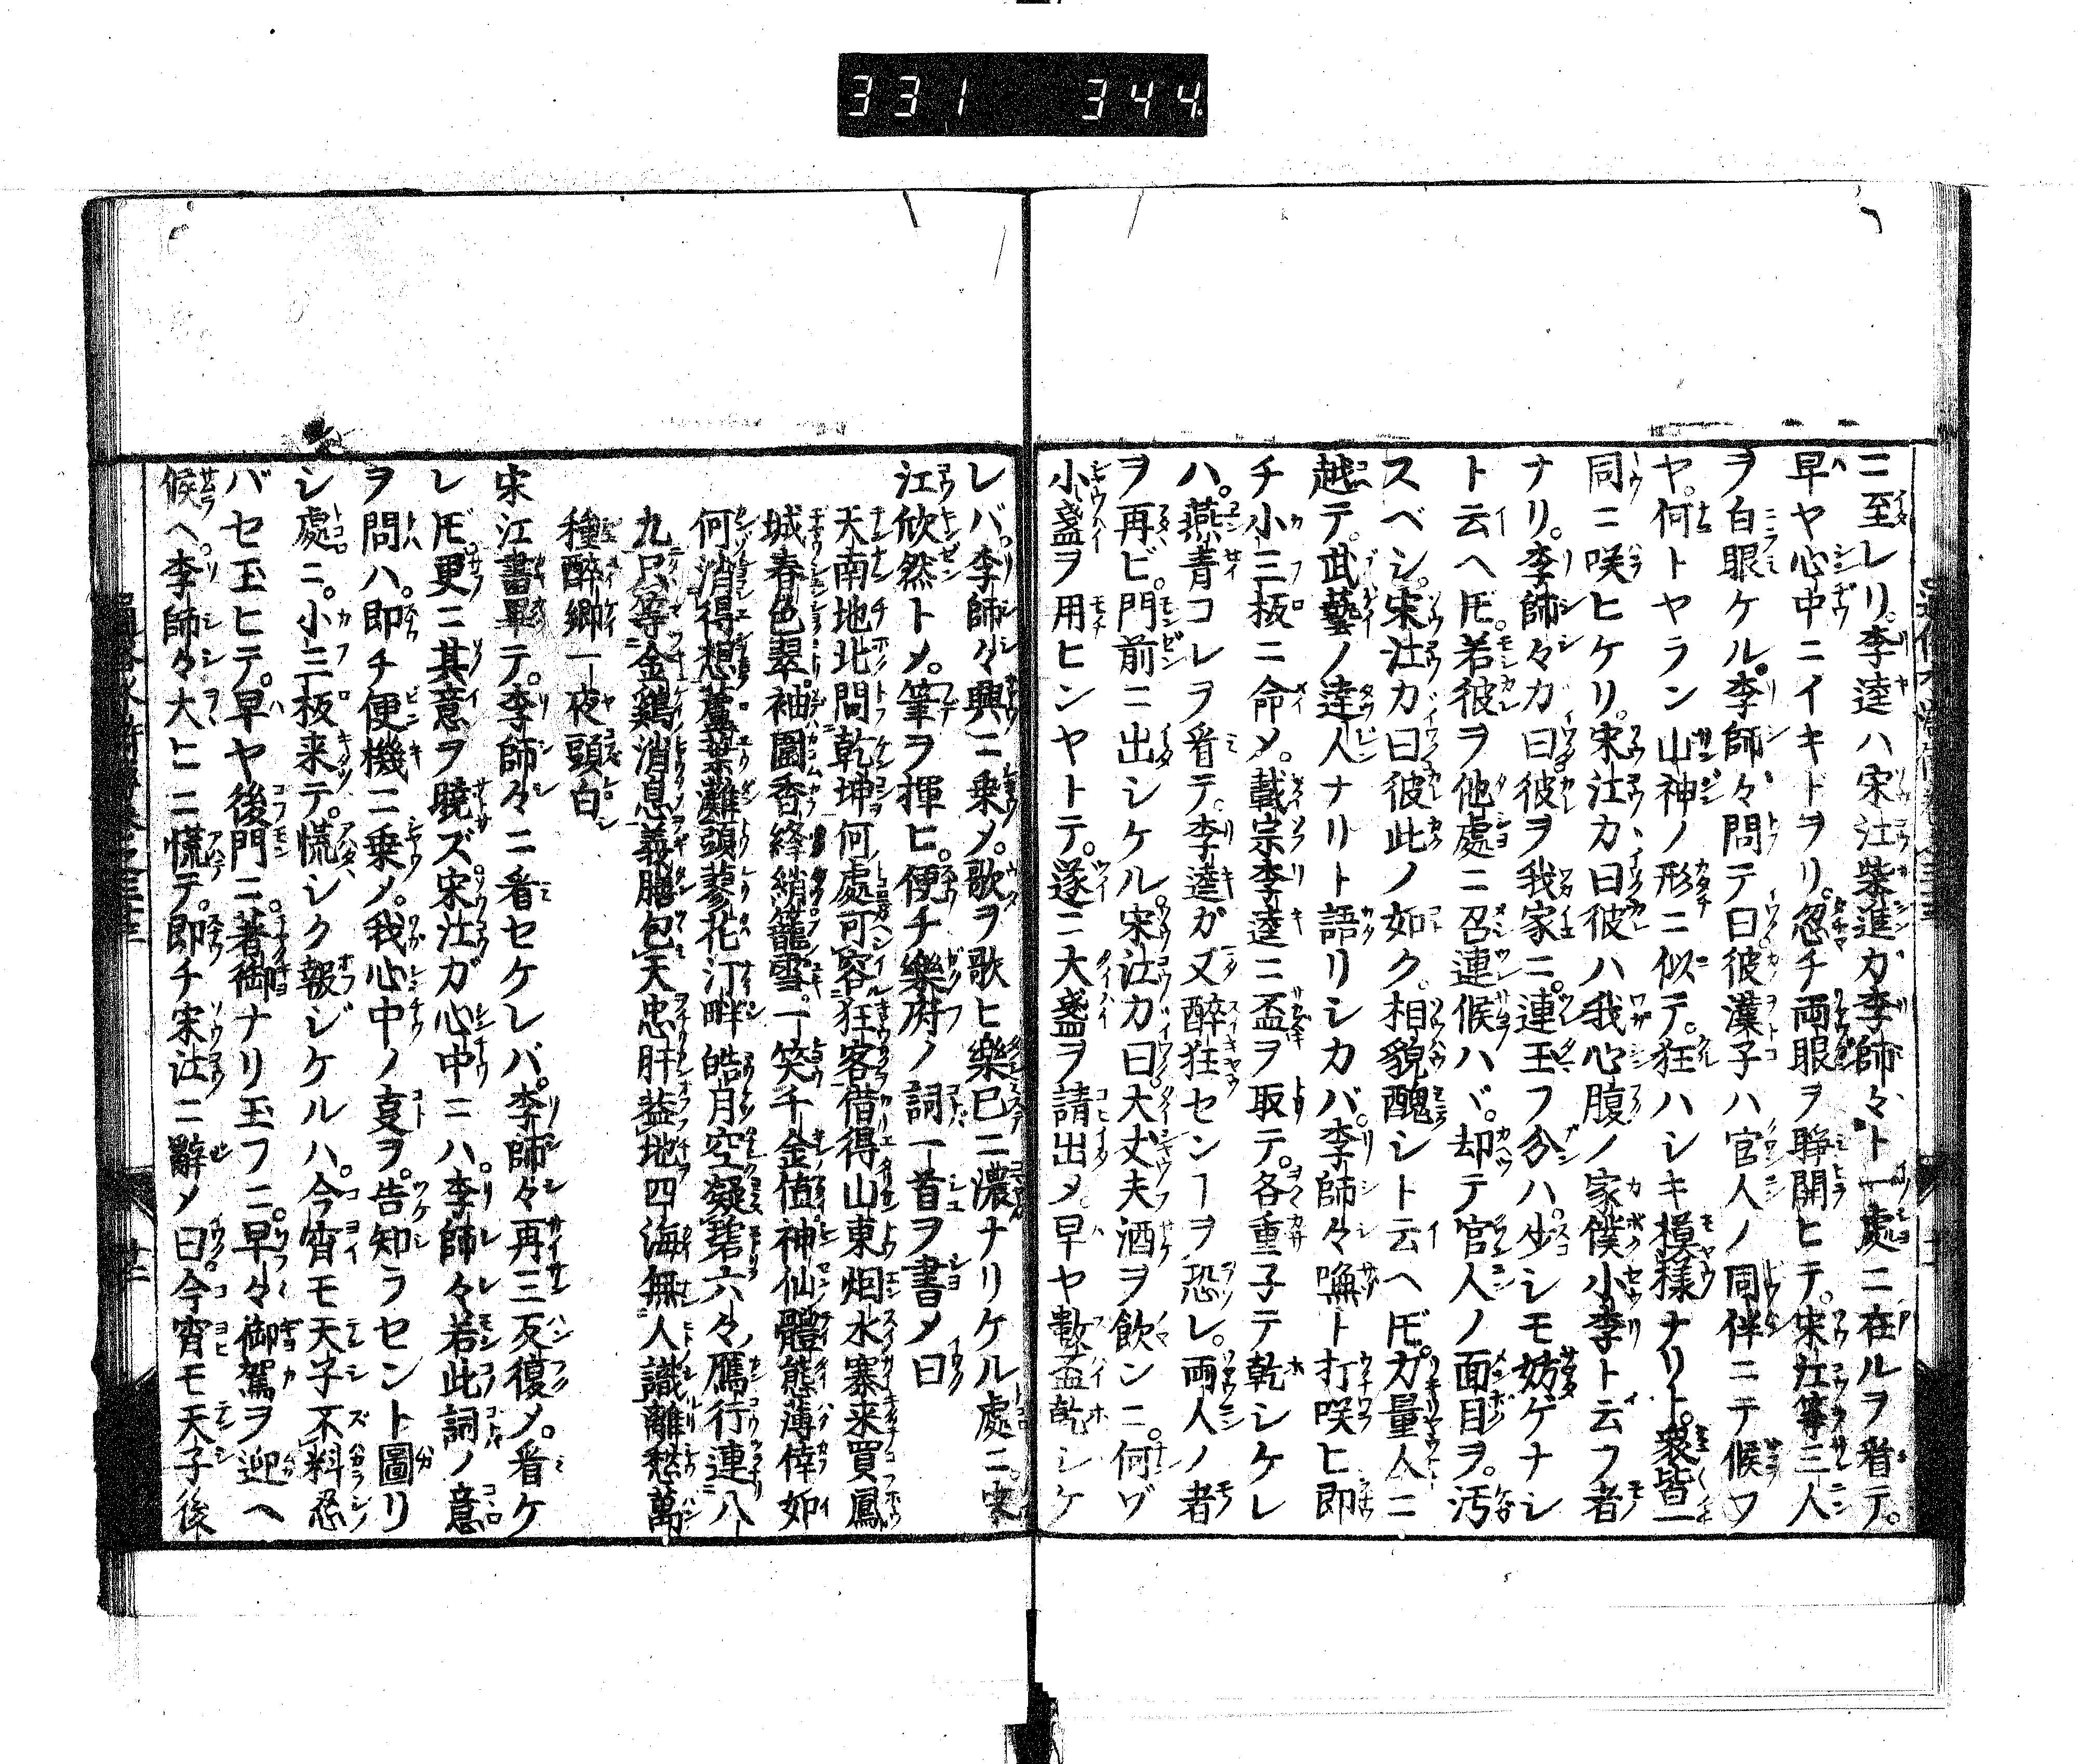 331 344
ニ至レリ。李逵ハ宋江柴進カ李師々ト一處ニ在ルヲ看テ。
早ヤ心中ニイキドヲリ。忽チ両眼ヲ睜開ヒテ。宋江等三人
ヲ白眼ケル。李師々問テ曰彼漢子ハ官人ノ同伴ニテ候フ
ヤ。何トヤラン山神ノ形ニ似テ。狂ハシキ模樣ナリト。衆皆一
同ニ咲ヒケリ。宋江カ曰彼ハ我心腹ノ家僕小李ト云フ者
ナリ。李師々カ曰彼ヲ我家ニ。連玉フ分ハ。少シモ妨ゲナシ
ト云ヘ𪜈。若彼ヲ他處ニ召連候ハヾ。却テ官人ノ面目ヲ。汚
スベシ。宋江カ曰彼此ノ如ク。相貌醜シト云ヘ𪜈。力量人ニ
越テ。武藝ノ達人ナリト語リシカバ。李師々喚ト打咲ヒ即
チ小三板ニ命メ。載宗李逵ニ盃ヲ取テ。各重子テ乾シケレ
ハ。燕青コレヲ看テ。李逵ガ又醉狂センヿヲ恐レ。両人ノ者
ヲ再ビ。門前ニ出シケル。宋江カ曰大丈夫酒ヲ飲ンニ。何ゾ
小盞ヲ用ヒンヤトテ。遂ニ大盞ヲ請出メ早ヤ數盃乾シケ
レバ。李師々興ニ乗メ。歌ヲ歌ヒ樂已ニ濃ナリケル處ニ。宋
江欣然トメ。筆ヲ揮ヒ。便チ樂府ノ詞一首ヲ書メ曰
天南地北問乾坤何處可容狂客借得山東烟水寨来買鳳
城春色翠袖圍香絳綃籠雪一笑千金値神仙體態薄倖如
何消得想蘆葉灘頭蓼花汀畔皓月空凝碧六々鴈行連八
九只等金鷄消息義膽包天忠肝蓋地四海無人識離愁萬
種醉郷一夜頭白
宋江書畢テ。李師々ニ看セケレバ。李師々再三反復メ。看ケ
レ𪜈。更ニ其意ヲ曉ズ宋江ガ心中ニハ。李師々若此詞ノ意
ヲ問ハ。即チ便機ニ乗ノ。我心中ノ叓ヲ。告知ラセント圖リ
シ處ニ。小三板来テ。慌シク報ジケルハ。今宵モ天子不料忍
バセ玉ヒテ。早ヤ後門ニ。著御ナリ玉フニ。早々御駕ヲ迎ヘ
候ヘ。李師々大ヒニ慌テ。即チ宋江ニ辭メ曰。今宵モ天子後